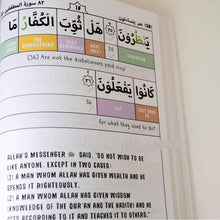 ٨٣ سورة المطففين
يَنظُرُونَ ٣٥ هَلْ ثُوِّبَ الْكُفَّارُ مَا
[36] Are not the disbelievers paid
كَانُوا يَفْعَلُونَ ٣٦
THEY USED TO DO 36
for what they used to do?
ALLAH'S MESSENGER ﷺ SAID, "DO NOT WISH TO BE
LIKE ANYONE, EXCEPT IN TWO CASES:
(1) A MAN WHOM ALLAH HAS GIVEN WEALTH AND HE
SPENDS IT RIGHTEOUSLY.
(2) A MAN WHOM ALLAH HAS GIVEN WISDOM
(KNOWLEDGE OF THE QUR'AN AND THE HADITH) AND HE
ACTS ACCORDING TO IT AND TEACHES IT TO OTHERS."